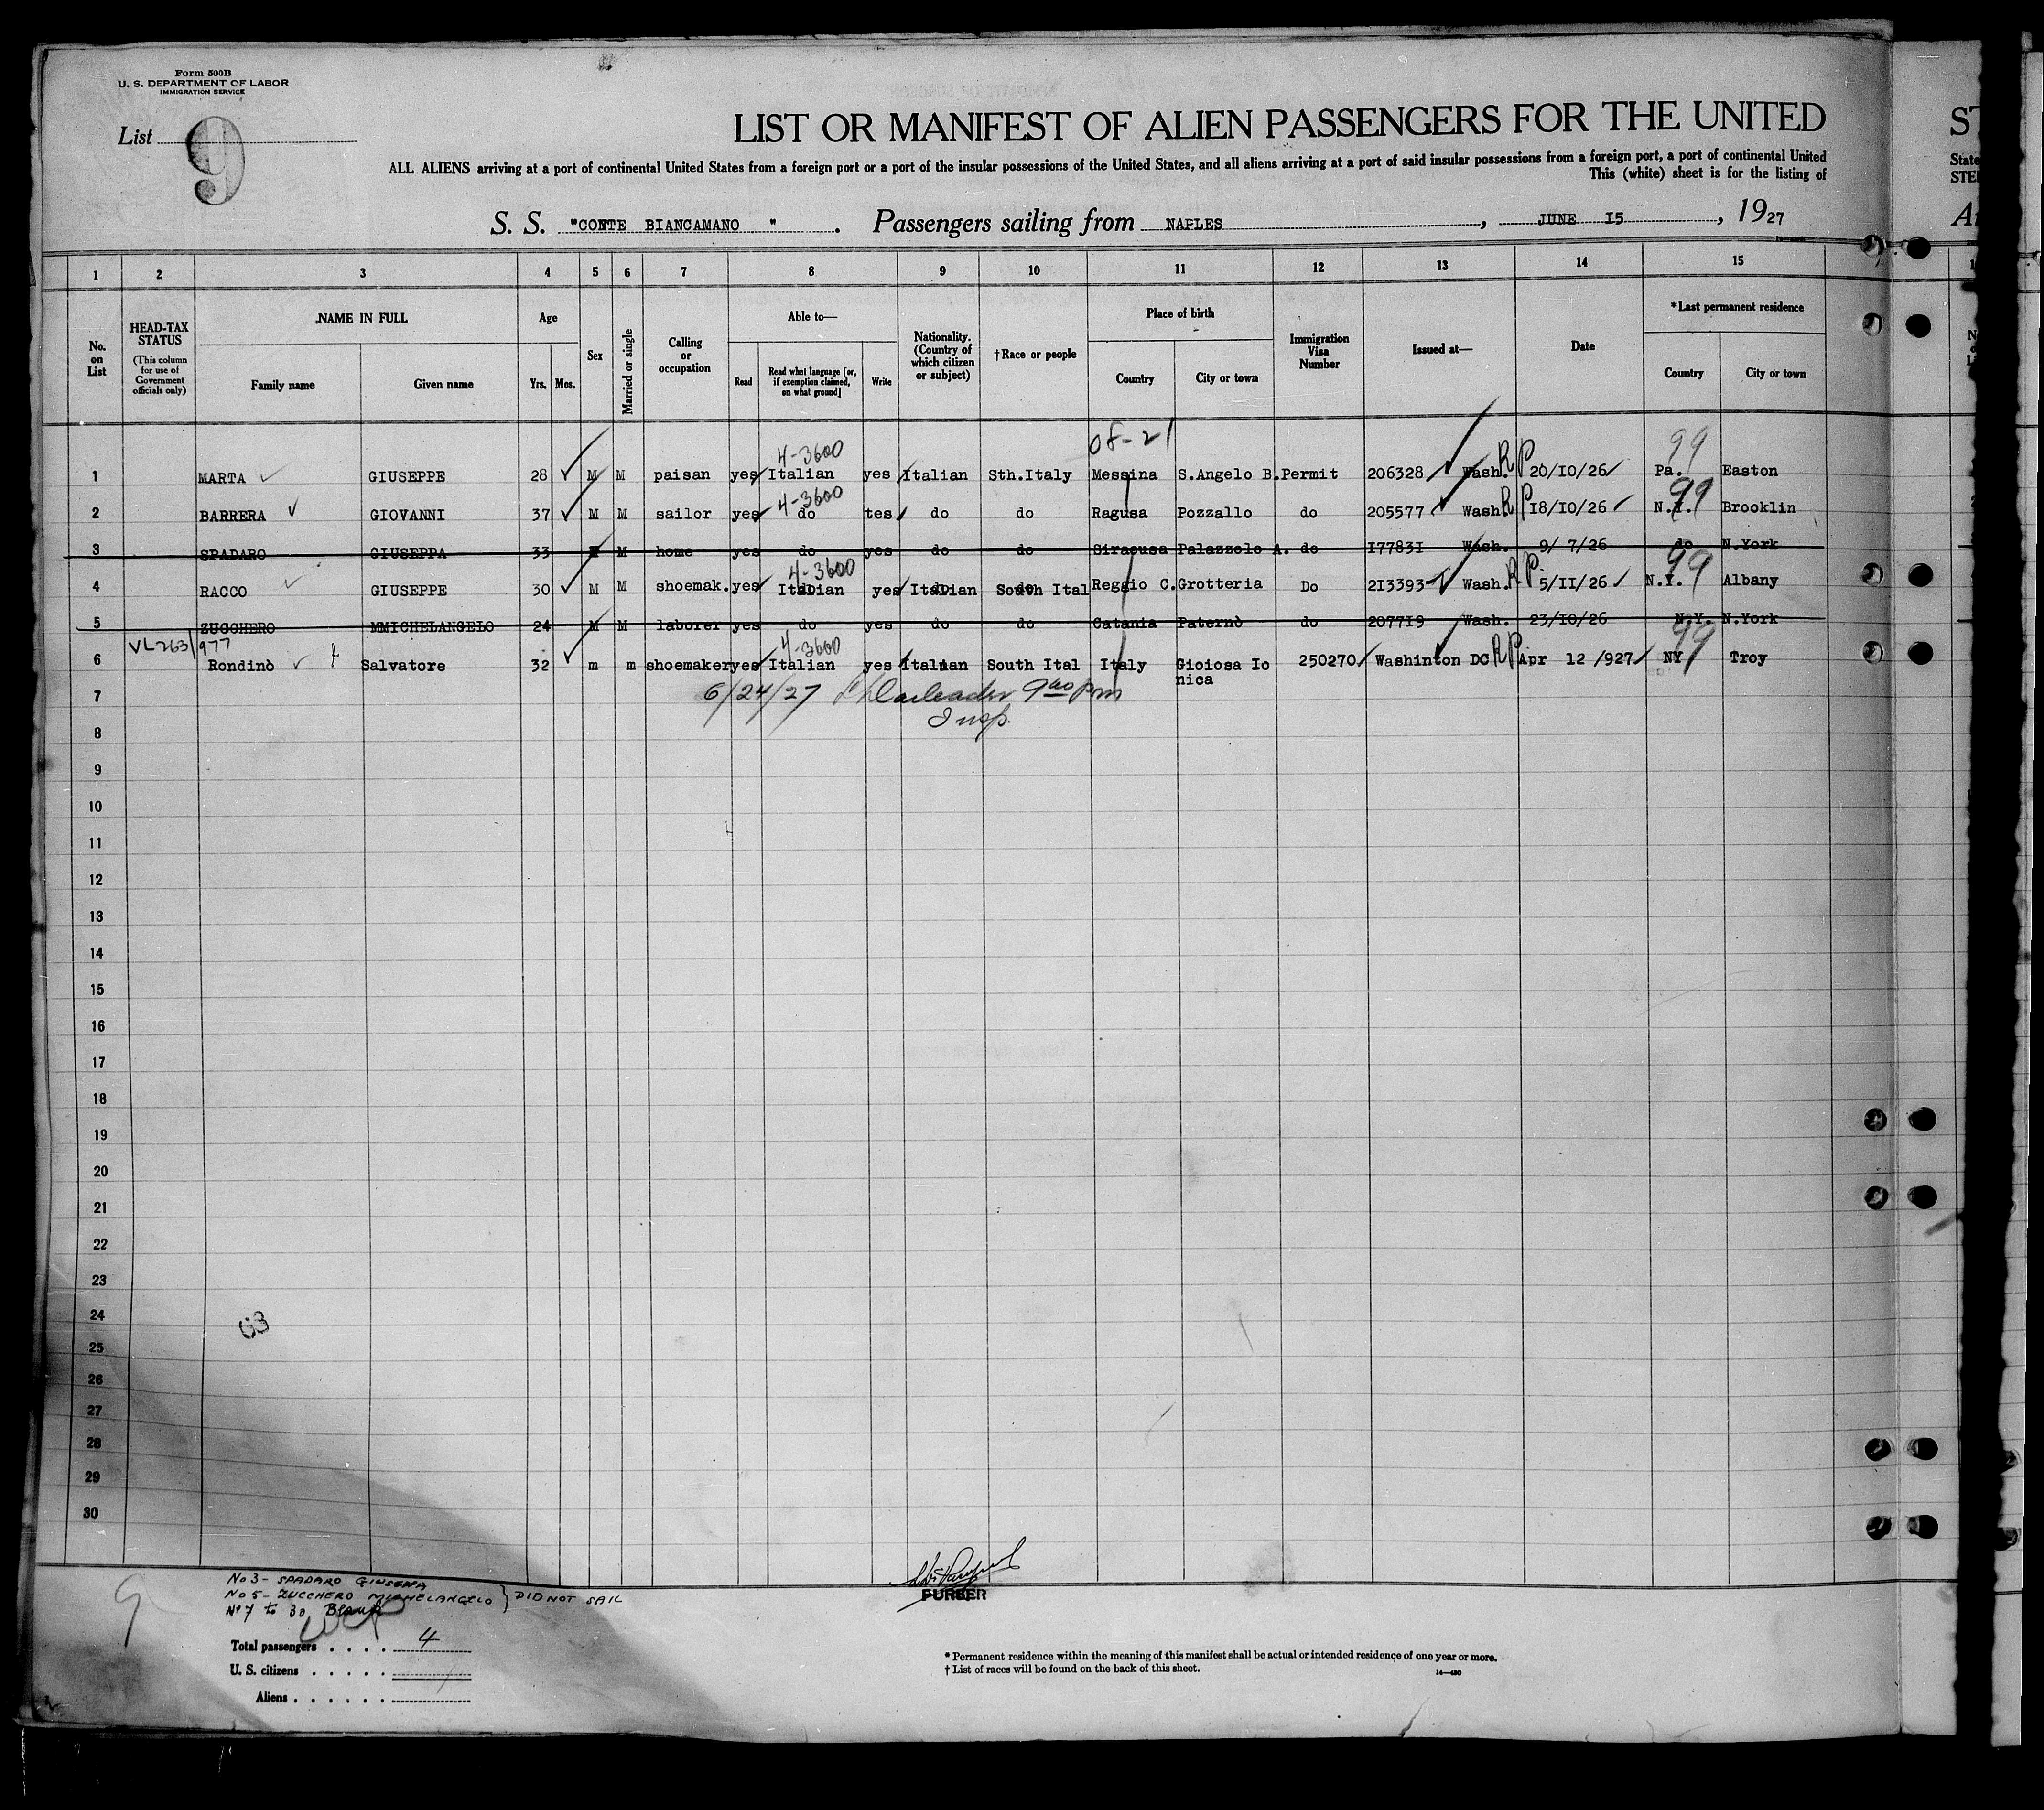 Form 500B
U. S. DEPARTMENT OF LABOR
IMMIGRATION SERVICE
List 9
LIST OR MANIFEST OF ALIEN PASSENGERS FOR THE UNITED
ALL ALIENS arriving at a port of continental United States from a foreign port or a port of the insular possessions of the United States, and all aliens arriving at a port of said insular possessions from a foreign port, a port of continental United
This (white) sheet is for the listing of
S. S. "CONTE BIANCAMANO " . Passengers sailing from NAPLES , JUNE I5 , 1927
1 2 3 4 5 6 7 8 9 10 11 12 13 14 15
No. on List
HEAD-TAX STATUS
(This column for use of Government officials only)
NAME IN FULL
Family name Given name
Age
Yrs. Mos.
Sex
Married or single
Calling or occupation
Able to—
Read Read what language [or, if exemption claimed, on what ground] Write
Nationality. (Country of which citizen or subject)
†Race or people
Place of birth
Country City or town
Immigration Visa Number
Issued at—
Date
*Last permanent residence
Country City or town
08-21
4-3600 RP 99
1 MARTA GIUSEPPE 28 M M paisan yes Italian yes Italian Sth.Italy Messina S.Angelo B. Permit 206328 Wash. 20/I0/26 Pa. Easton
4-3600 RP 99
2 BARRERA GIOVANNI 37 M M sailor yes do tes do do Ragusa Pozzallo do 205577 Wash. I8/I0/26 N.Y. Brooklin
3 SPADARO GIUSEPPA 33 M home yes do yes do do Siracusa Palazzolo A. do I7783I Wash. 9/ 7/26 do N.York
4-3600 RP 99
4 RACCO GIUSEPPE 30 M M shoemak. yes Italian yes Italian South Ital Reggio C. Grotteria Do 2I3393 Wash. 5/II/26 N.Y. Albany
5 ZUCCHERO MMICHELANGELO 24 M M laborer yes do yes do do Catania Paternò do 2077I9 Wash. 23/I0/26 N.Y. N.York
VL263/977 4-3600 RP 99
6 Rondinò Salvatore 32 m m shoemaker yes Italian yes Italian South Ital Italy Gioiosa Io 250270 Washinton DC Apr 12 /927 NY Troy
nica
7 6/24/27 9 00 pm
Insp.
8
9
10
11
12
13
14
15
16
17
18
19
20
21
22
23
24
63
25
26
27
28
29
30
PURSER
9
No 3 - SPADARO GIUSEPPA
No 5 - ZUCCHERO MICHELANGELO } DID NOT SAIL
No 7 to 30 Blank
Total passengers . . . . 4
U. S. citizens . . . . .
Aliens . . . . . .
* Permanent residence within the meaning of this manifest shall be actual or intended residence of one year or more.
† List of races will be found on the back of this sheet.
14—430
ST
State
STE